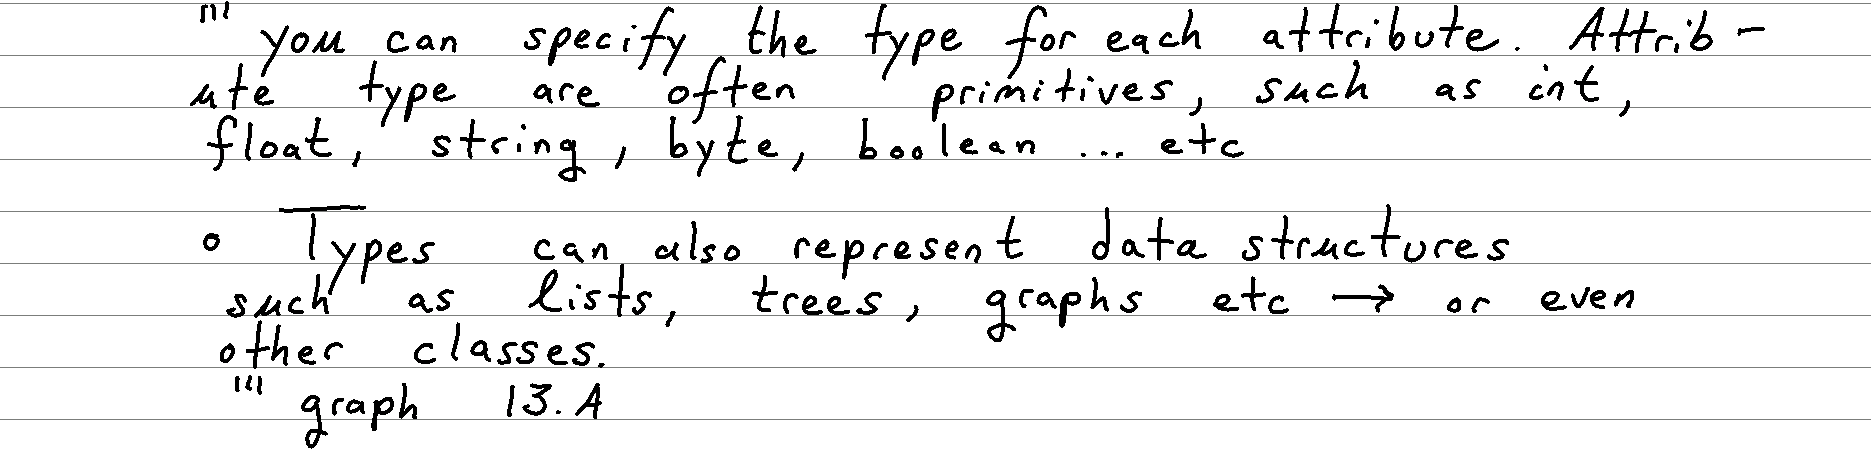 ''' you can specify the type for each attribute. Attrib-
ute type are often primitives, such as int,
float, string, byte, boolean ... etc
◦ Types can also represent data structures
such as lists, trees, graphs etc → or even
other classes.
''' graph 13.A